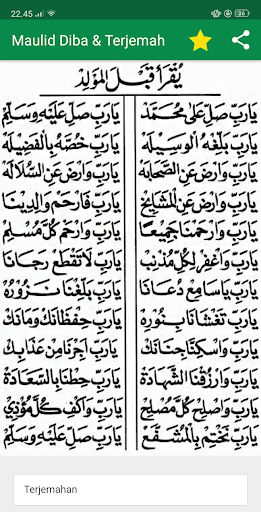 22.45
Maulid Diba & Terjemah
يُقْرَأُ قَبْلَ الْمَوْلِدِ
يَارَبِّ صَلِّ عَلىٰ مُحَمَّدْ يَارَبِّ صَلِّ عَلَيْهِ وَسَلِّمْ
يَارَبِّ بَلِّغْهُ الْوَسِيْلَهْ يَارَبِّ خُصَّهُ بِالْفَضِيْلَهْ
يَارَبِّ وَارْضَ عَنِ الصَّحَابَهْ يَارَبِّ وَارْضَ عَنِ السُّلَالَهْ
يَارَبِّ وَارْضَ عَنِ الْمَشَايِخْ يَارَبِّ فَارْحَمْ وَالِدِيْنَا
يَارَبِّ وَارْحَمْنَا جَمِيْعًا يَارَبِّ وَارْحَمْ كُلَّ مُسْلِمْ
يَارَبِّ وَاغْفِرْ لِكُلِّ مُذْنِبْ يَارَبِّ لَاتَقْطَعْ رَجَانَا
يَارَبِّ يَاسَامِعْ دُعَانَا يَارَبِّ بَلِّغْنَا نَزُوْرُهْ
يَارَبِّ تَغْشَانَا بِنُوْرِهْ يَارَبِّ حِفْظَانَكْ وَمَانَكْ
يَارَبِّ وَاسْكِنَّا جِنَانَكْ يَارَبِّ اَجِرْنَا مِنْ عَذَابِكْ
يَارَبِّ وَارْزُقْنَا الشَّهَادَةْ يَارَبِّ حِطْنَا بِالسَّعَادَةْ
يَارَبِّ وَاصْلِحْ كُلَّ مُصْلِحْ يَارَبِّ وَاكْفِ كُلَّ مُؤْذِيْ
يَارَبِّ نَخْتِمْ بِالْمُشَفَّعْ يَارَبِّ صَلِّ عَلَيْهِ وَسَلِّمْ
Terjemahan